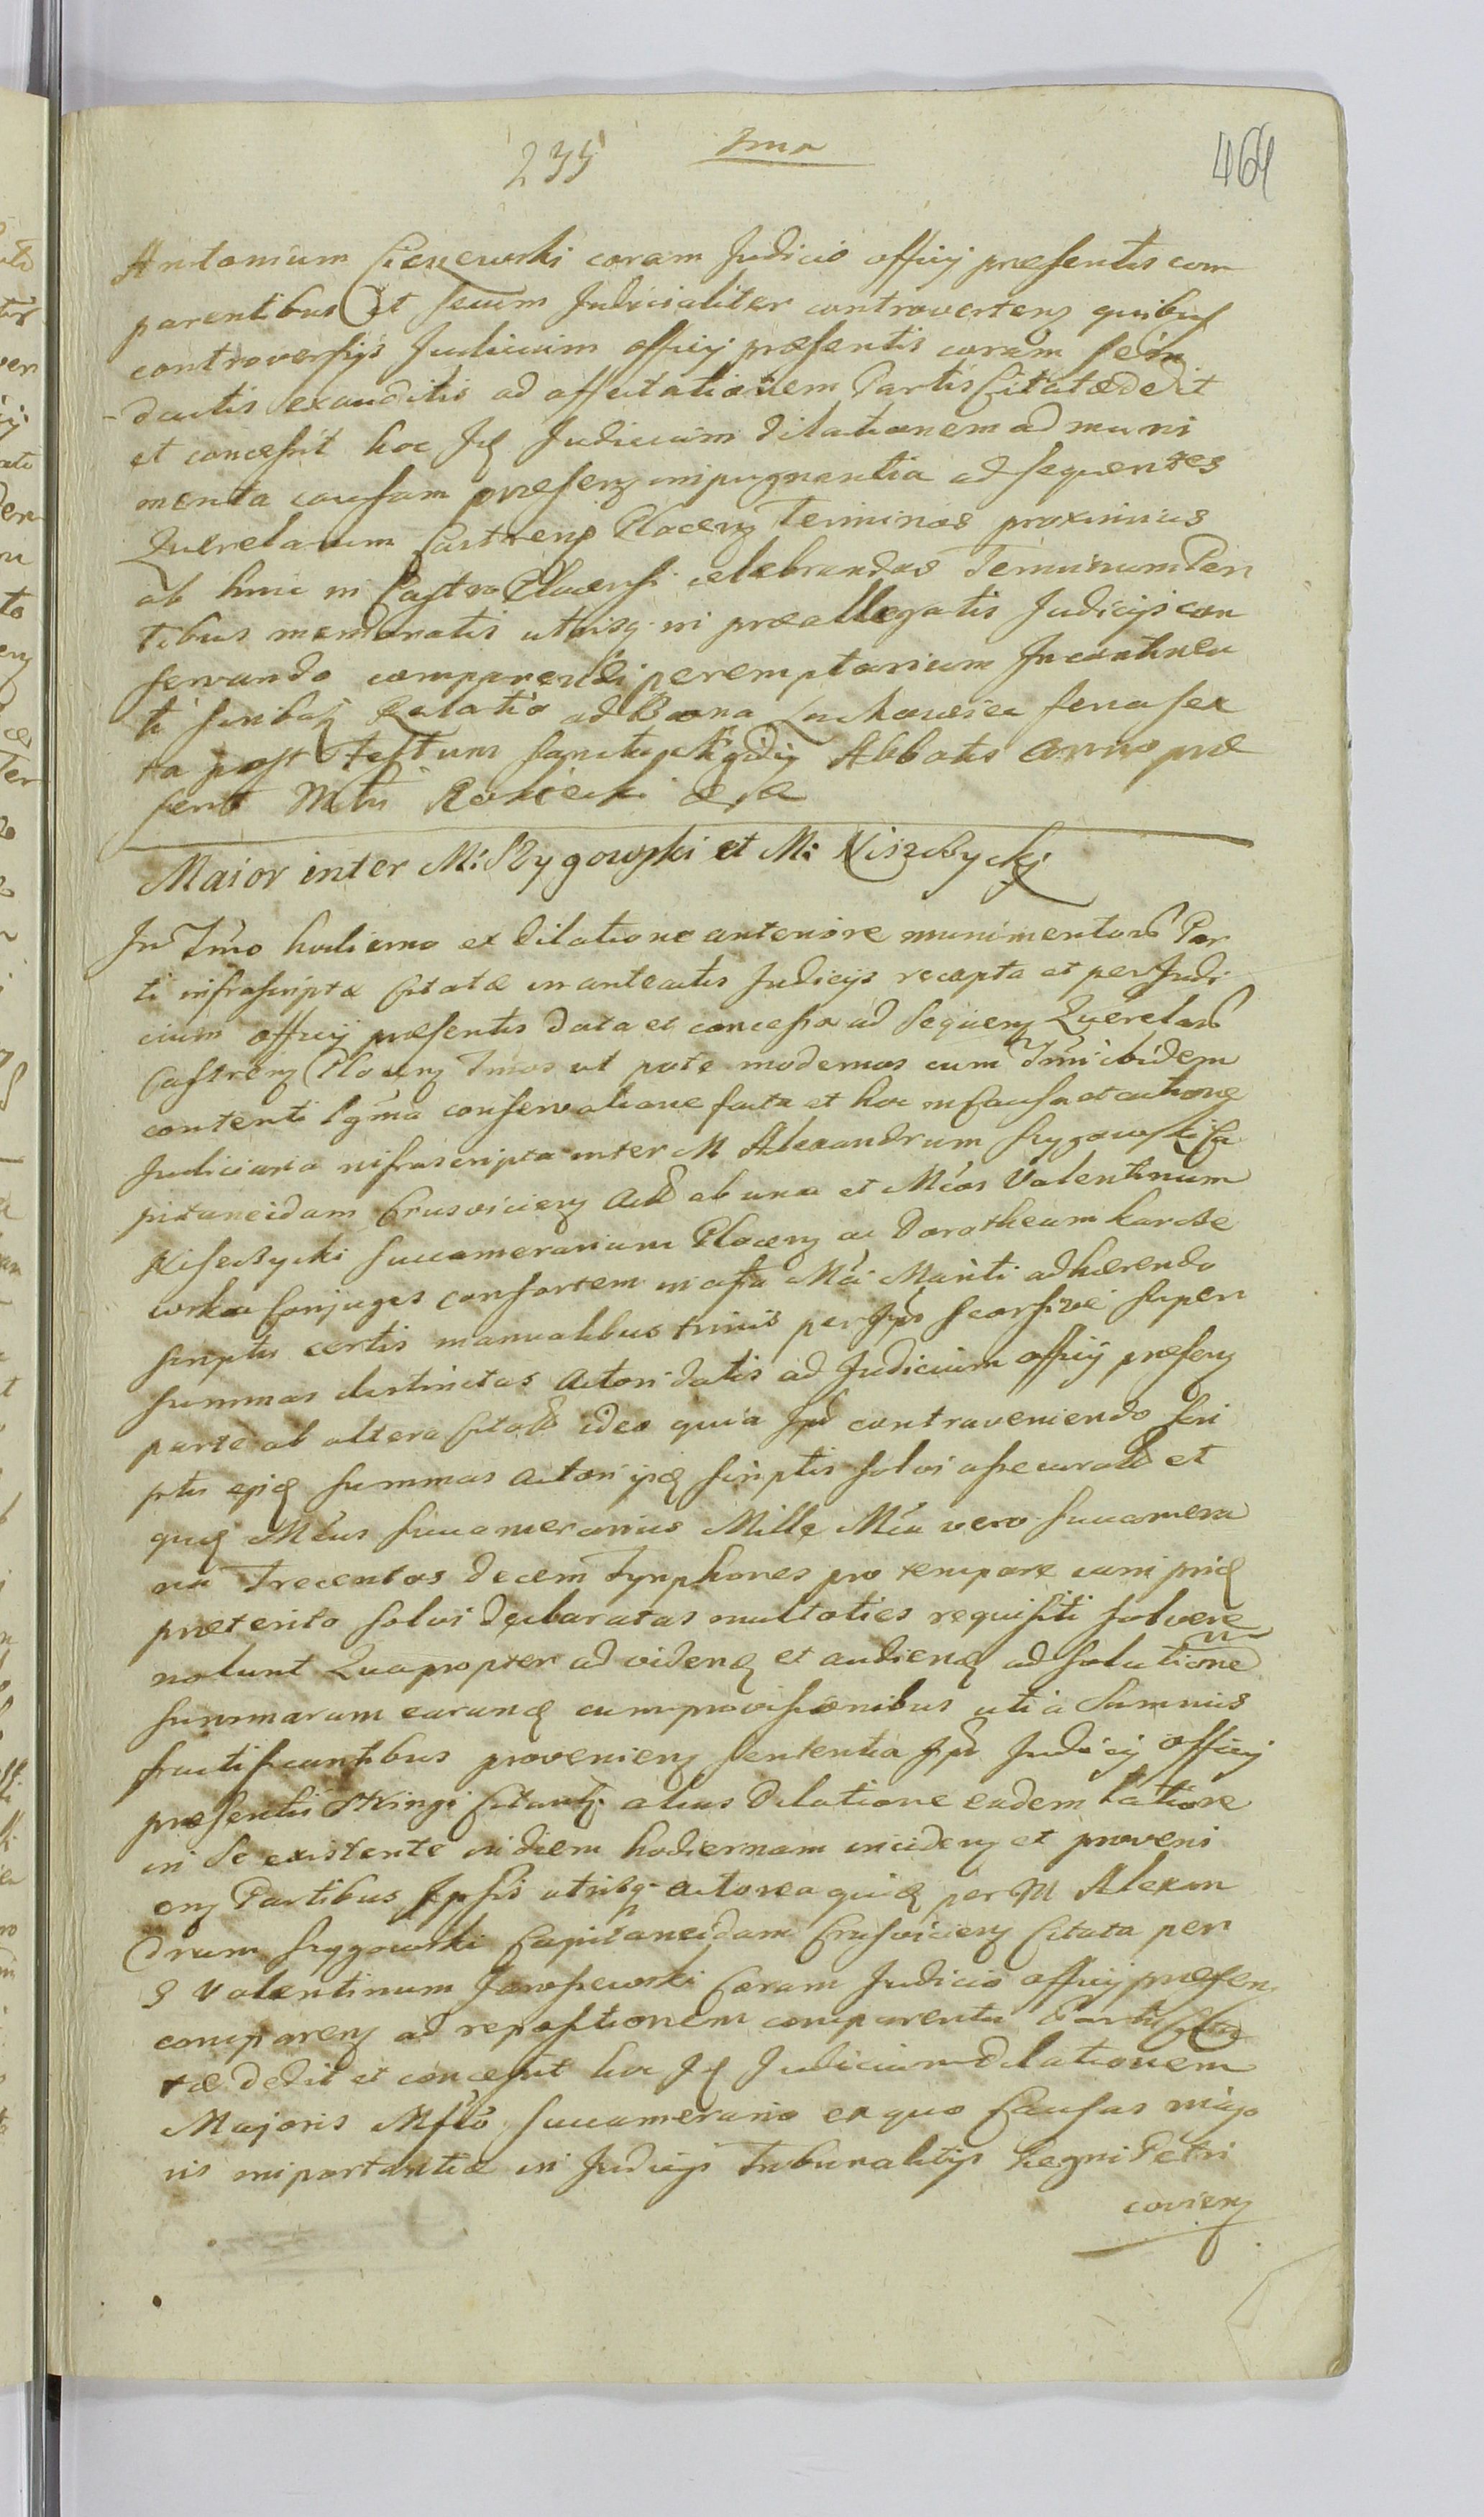 235 Ima 464
Antonium Cieszewski coram Judicio officij præsentis com
parentibus Et secum Judicialiter controverten quibus
controversijs Judicium officij præsentis coram se in
ductis exauditis ad affectationem Partis Citatæ dedit
et concessit hoc Judicium dilationem ad muni
menta causam præsen impugnantia ad sequentes
Querelarum Castren Plocen Terminos proximius
ab hinc in Castro Plocensi celebrandos Terminum Par
tibus memoratis utrisq in præallegatis Judicijs con
servando comparendi peremptorium Incontinen
ti Relatio ad Bona feria sex
ta post Festum Sancti Ægidij Abbatis anno præ
senti Rokicki
Maior inter M: Szygowski et M: Niszczycki
In Tmo hodierno ex dilatione anteriore munimentorum Par
ti infrascriptæ Citatæ in anteactis Judicijs recepta et per Judi
cium officij præsentis data et concessa ad sequen Querelarum
Castren Plocen Tmos ut pote modernos cum Tmi ibidem
contenti conservatione facta et hoc in Causa et actione
Judiciaria infrascripta inter M Alexandrum Szygowski Ca
pitaneidam Crusvicien ab una et Mcos Valentinum
Niszczycki Succamerarium Plocen ac Dorotheam Karcze
wska Conjuges consortem in assa Mci Mariti adhærendo
scriptis certis manualibus trinis per seorsive super
summas distinctas Actori datis ad Judicium officij præsen
parte ab altera Citatos ideo quia contraveniendo scri
ptis summas Actori scriptis solvi assecuratas et
Mcus Succamerarius Mille Mca vero Succamera
ria Trecentos decem Tynphones pro tempore
præterito solvi declaratas multoties requisiti solvere
nolunt Quapropter ad viden et audien ad solutione
summarum earund cum provisionibus uti a Summis
fructificantibus provenien sententia Judicij officij
præsentis stringi alias dilatione eadem latiore
in se existente in diem hodiernam inciden et proveni
en Partibus Ipsis utrisq actorea per M Alexan
drum Szygowski Capitaneidam Crusvicien Citata per
G Valentinum Jaroszewski Coram Judicio officij præsen
comparen ad repositionem comparentis Partis Cita
tæ dedit et concessit hoc Judicium dilationem
Majoris Mfco Succamerario ex quo Causas majo
ris importantiæ in Judicijs Tribunalitijs Regni Petri
covien